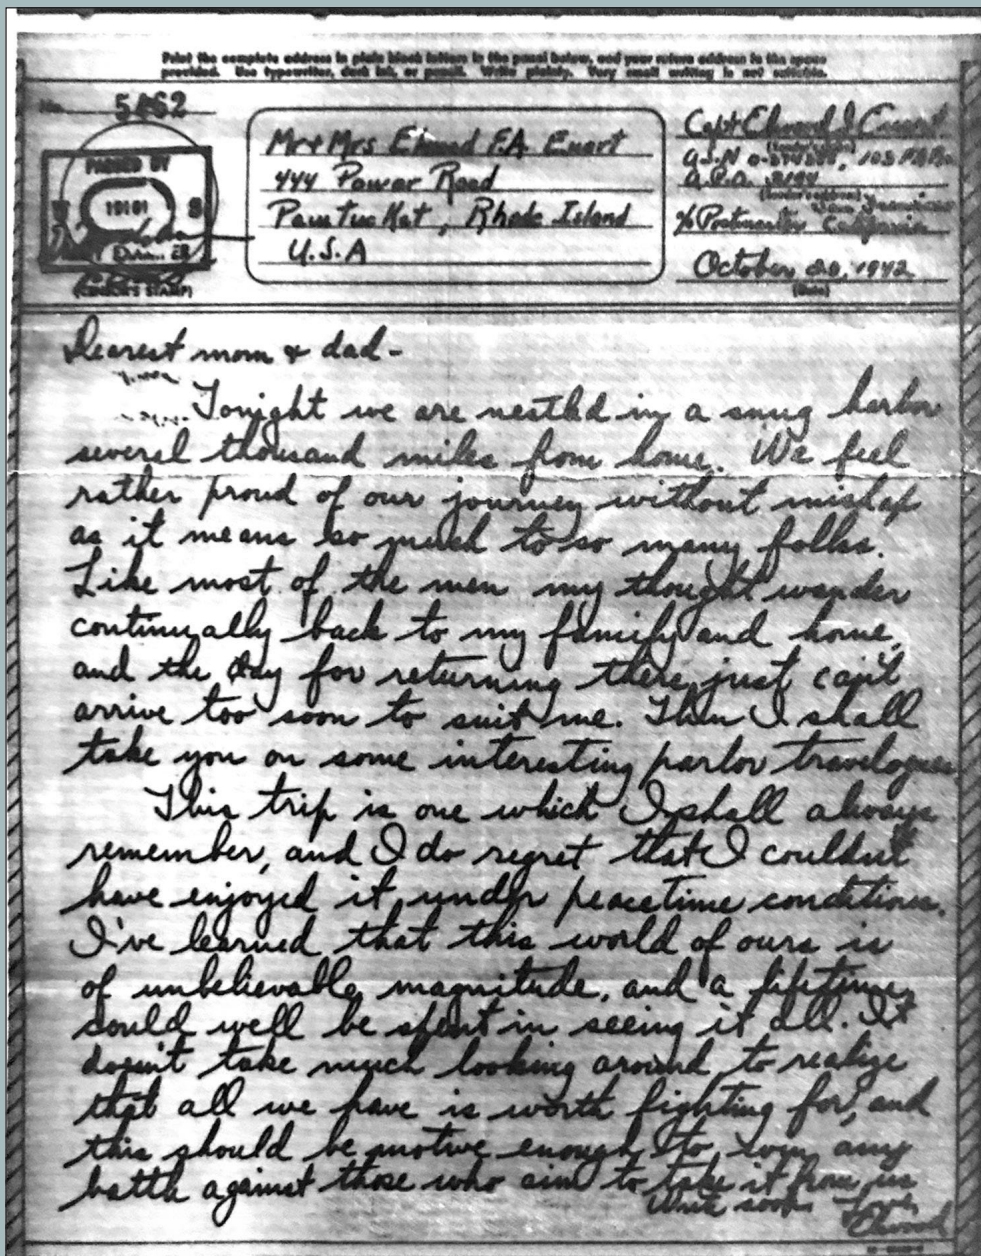 Print the complete address in plain block letters in the panel below, and your return address in the space
provided. Use typewriter, dark ink, or pencil. Write plainly. Very small writing is not suitable.
No.
PASSED BY
(CENSOR'S STAMP)
Mr + Mrs Edward F.A. Ewart
444 Power Road
Pawtucket, Rhode Island
U.S.A
Capt Edward J Ewart
(Sender's name)
A.S.N
A.P.O.
(Sender's address)
San Francisco
c/o Postmaster California
October 20, 1942
(Date)
Dearest mom & dad -
Tonight we are nestled in a snug harbor
several thousand miles from home. We feel
rather proud of our journey without mishap
as it means so much to so many folks.
Like most of the men my thought wander
continually back to my family and home,
and the day for returning there just can't
arrive too soon to suit me. Then I shall
take you on some interesting parlor travelogues.
This trip is one which I shall always
remember, and I do regret that I couldn't
have enjoyed it under peacetime conditions.
I've learned that this world of ours is
of unbelievable magnitude, and a lifetime
could well be spent in seeing it all. It
doesn't take much looking around to realize
that all we have is worth fighting for, and
this should be motive enough to win any
battle against those who aim to take it from us
Write soon Love,
Edward